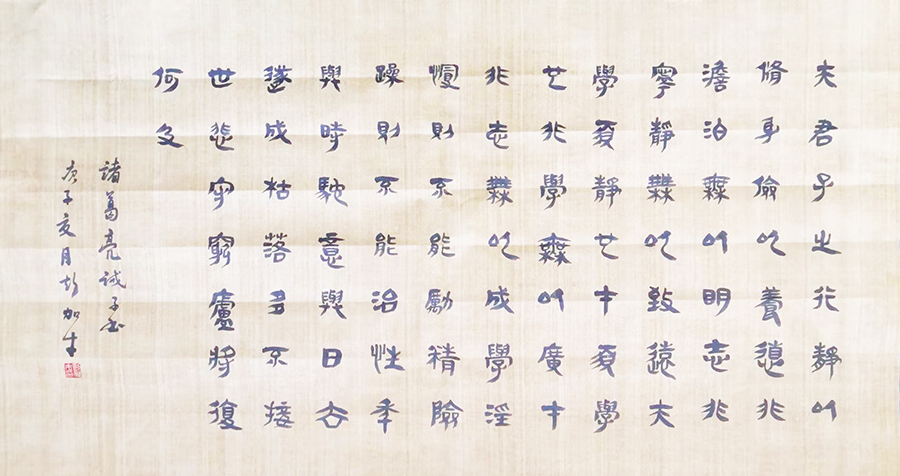 夫君子之行靜以
脩身儉以養德非
澹泊無以明志非
寧靜無以致遠夫
學須靜也才須學
也非學無以廣才
非志無以成學淫
慢則不能勵精險
躁則不能治性年
與時馳意與日去
遂成枯落多不接
世悲守窮廬將復
何及
諸葛亮誡子書
庚子亥月胡加